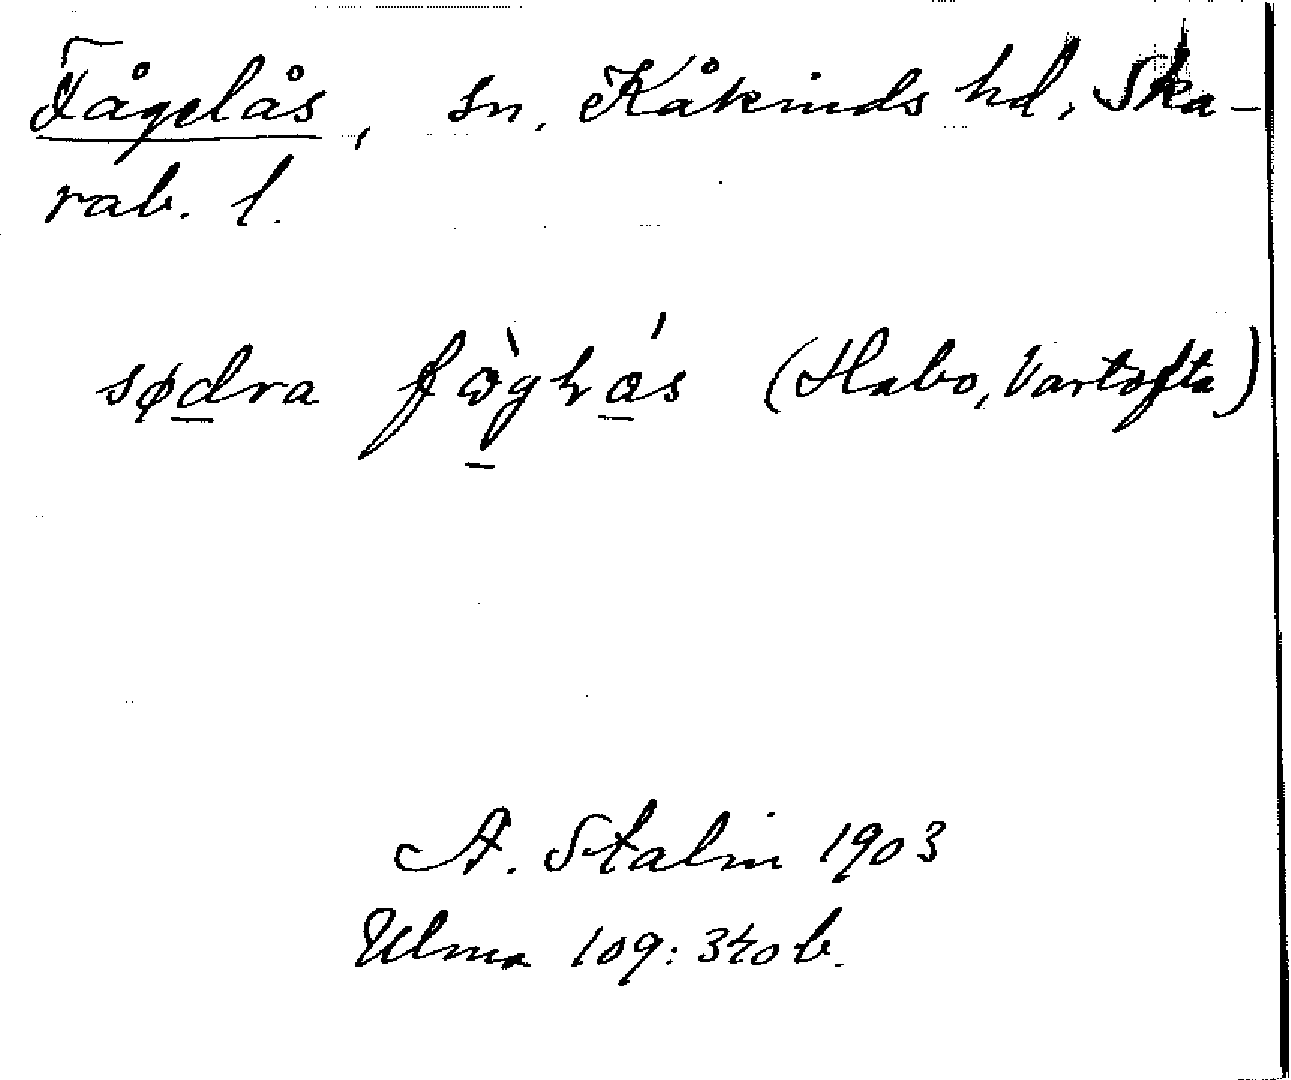 Fågelås, sn, Kåkinds hd, Ska-
rab. l.
södra fòglås (Habo, Vartofta)
A. Stalin 1903
Ulma 109: 340 b.